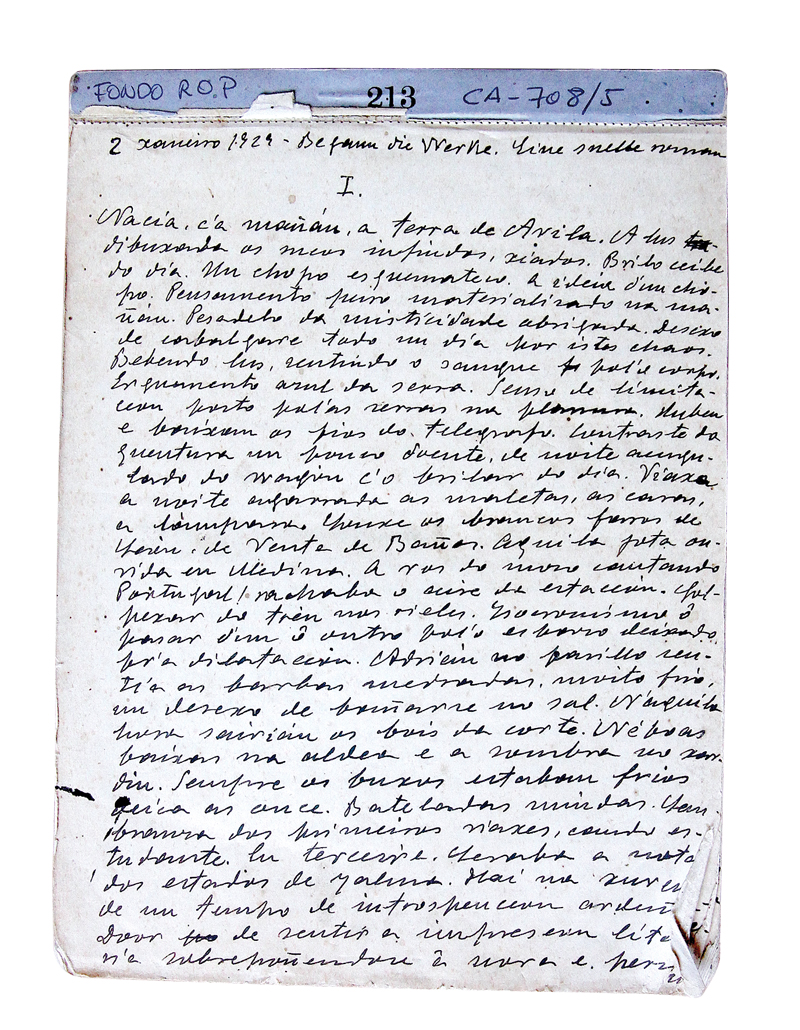 FONDO R.O.P 213 CA-708/5
2 xaneiro 1929 - Begann die Werke. Eine snelle roman
I.
Nacía, c'a mañán, a terra de Avila. A lus
dibuxada os meus infindos, xiados. Brilo ceibe
do día. Un chopo esquematico. A ideia d'un cho-
po. Pensamento puro materializado na ma-
ñán. Pesadelo da misticidade abrigada. Desexo
de cabalgare todo un día por istes chaos.
Bebendo lus, sentindo o sangue pol-o corpo.
Erguemento azul da serra. Senso de limita-
ción posto pol'as serras na planura. Suben
e baixan os fios do telegrafo. Contraste da
quentura un pouco doente, de noite acugu-
lado do wagón c'o brilar do día. Viaxa
a noite agarrada as maletas, as caras,
a lámpara. Trouxe os brancos faros de
León, de Venta de Baños. Aquila jota ou-
vida en Medina. A vos do mozo cantando
Portugal! rachaba o aire da estación. Gol-
pexar do tren nos rieles. Isocronismo ô
pasar d'un ô outro pol-o espazo deixado
pr'a dilatación. Adrián no pasillo sen-
tía as barbas medradas, moito frio,
un desexo de bañarse no sol. N'aquila
hora sairían os bois da corte. Néboas
baixas na aldea e a sombra no xar-
din. Sempre os buxos estaban frios
deica as once. Bateladas miudas. Lem-
branza dos primeiros viaxes, cando es-
tudante. En terceira. Levaba a nota
dos estados de yalma. Hai na xuven
de un tempo de introspección
Door de sentir a impresión lite
ria sobrepoñendose â nova e